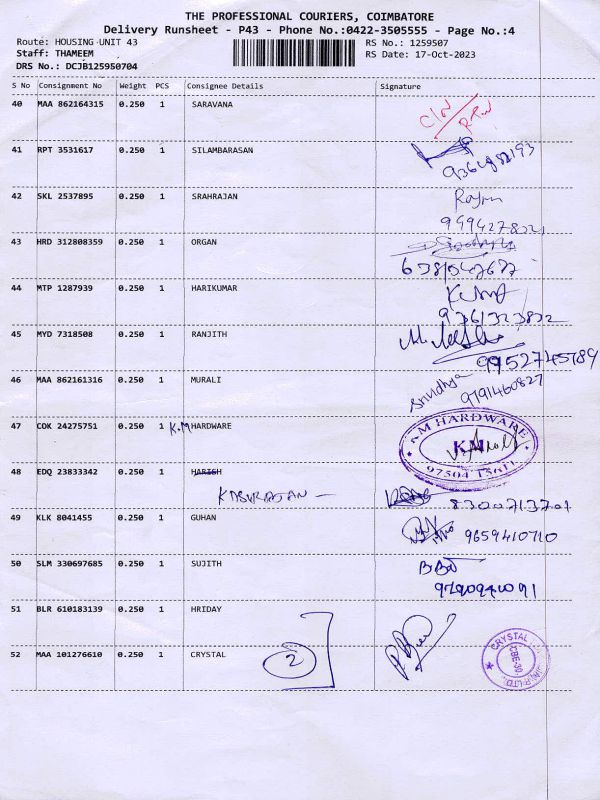 THE PROFESSIONAL COURIERS, COIMBATORE
Delivery Runsheet - P43 - Phone No.:0422-3505555 - Page No.:4
Route: HOUSING UNIT 43 RS No.: 1259507
Staff: THAMEEM RS Date: 17-Oct-2023
DRS No.: DCJB125950704
S No Consignment No Weight PCS Consignee Details Signature
40 MAA 862164315 0.250 1 SARAVANA
41 RPT 3531617 0.250 1 SILAMBARASAN
42 SKL 2537895 0.250 1 SRAHRAJAN
43 HRD 312808359 0.250 1 ORGAN
44 MTP 1287939 0.250 1 HARIKUMAR
9361323832
45 MYD 7318508 0.250 1 RANJITH
9952745789
46 MAA 862161316 0.250 1 MURALI
Srividhya
9791460827
47 COK 24275751 0.250 1 K.M HARDWARE
KM HARDWARE
KM
48 EDQ 23833342 0.250 1 HARISH
8300713701
49 KLK 8041455 0.250 1 GUHAN
9659410710
50 SLM 330697685 0.250 1 SUJITH
51 BLR 610183139 0.250 1 HRIDAY
52 MAA 101276610 0.250 1 CRYSTAL
2
CRYSTAL
CBE-39